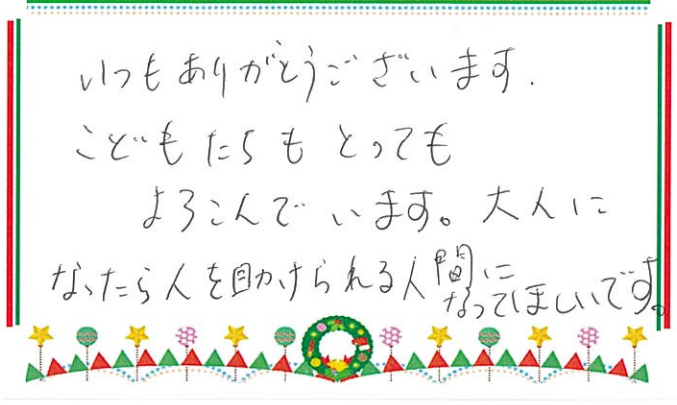 いつもありがとうございます.
こどもたちもとっても
よろこんでいます。大人に
なったら人を助けられる人間に
なってほしいです。